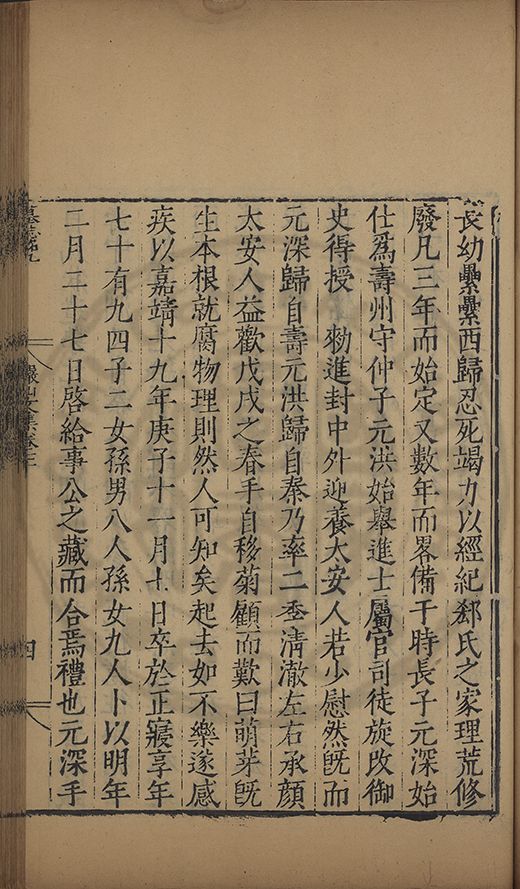 長幼纍纍西歸忍死竭力以經紀郄氏之家理荒修
廢凡三年而始定又數年而畧備于時長子元深始
仕爲壽州守仲子元洪始舉進士屬官司徒旋改御
史得授 勑進封中外迎養太安人若少慰然旣而
元深歸自壽元洪歸自秦乃率二季淸澈左右承顔
太安人益歡戊戌之春手自移菊顧而歎曰萌芽旣
生本根就腐物理則然人可知矣起去如不樂遂感
疾以嘉靖十九年庚子十一月十日卒於正寢享年
七十有九四子二女孫男八人孫女九人卜以明年
二月二十七日啓給事公之藏而合焉禮也元深手
四